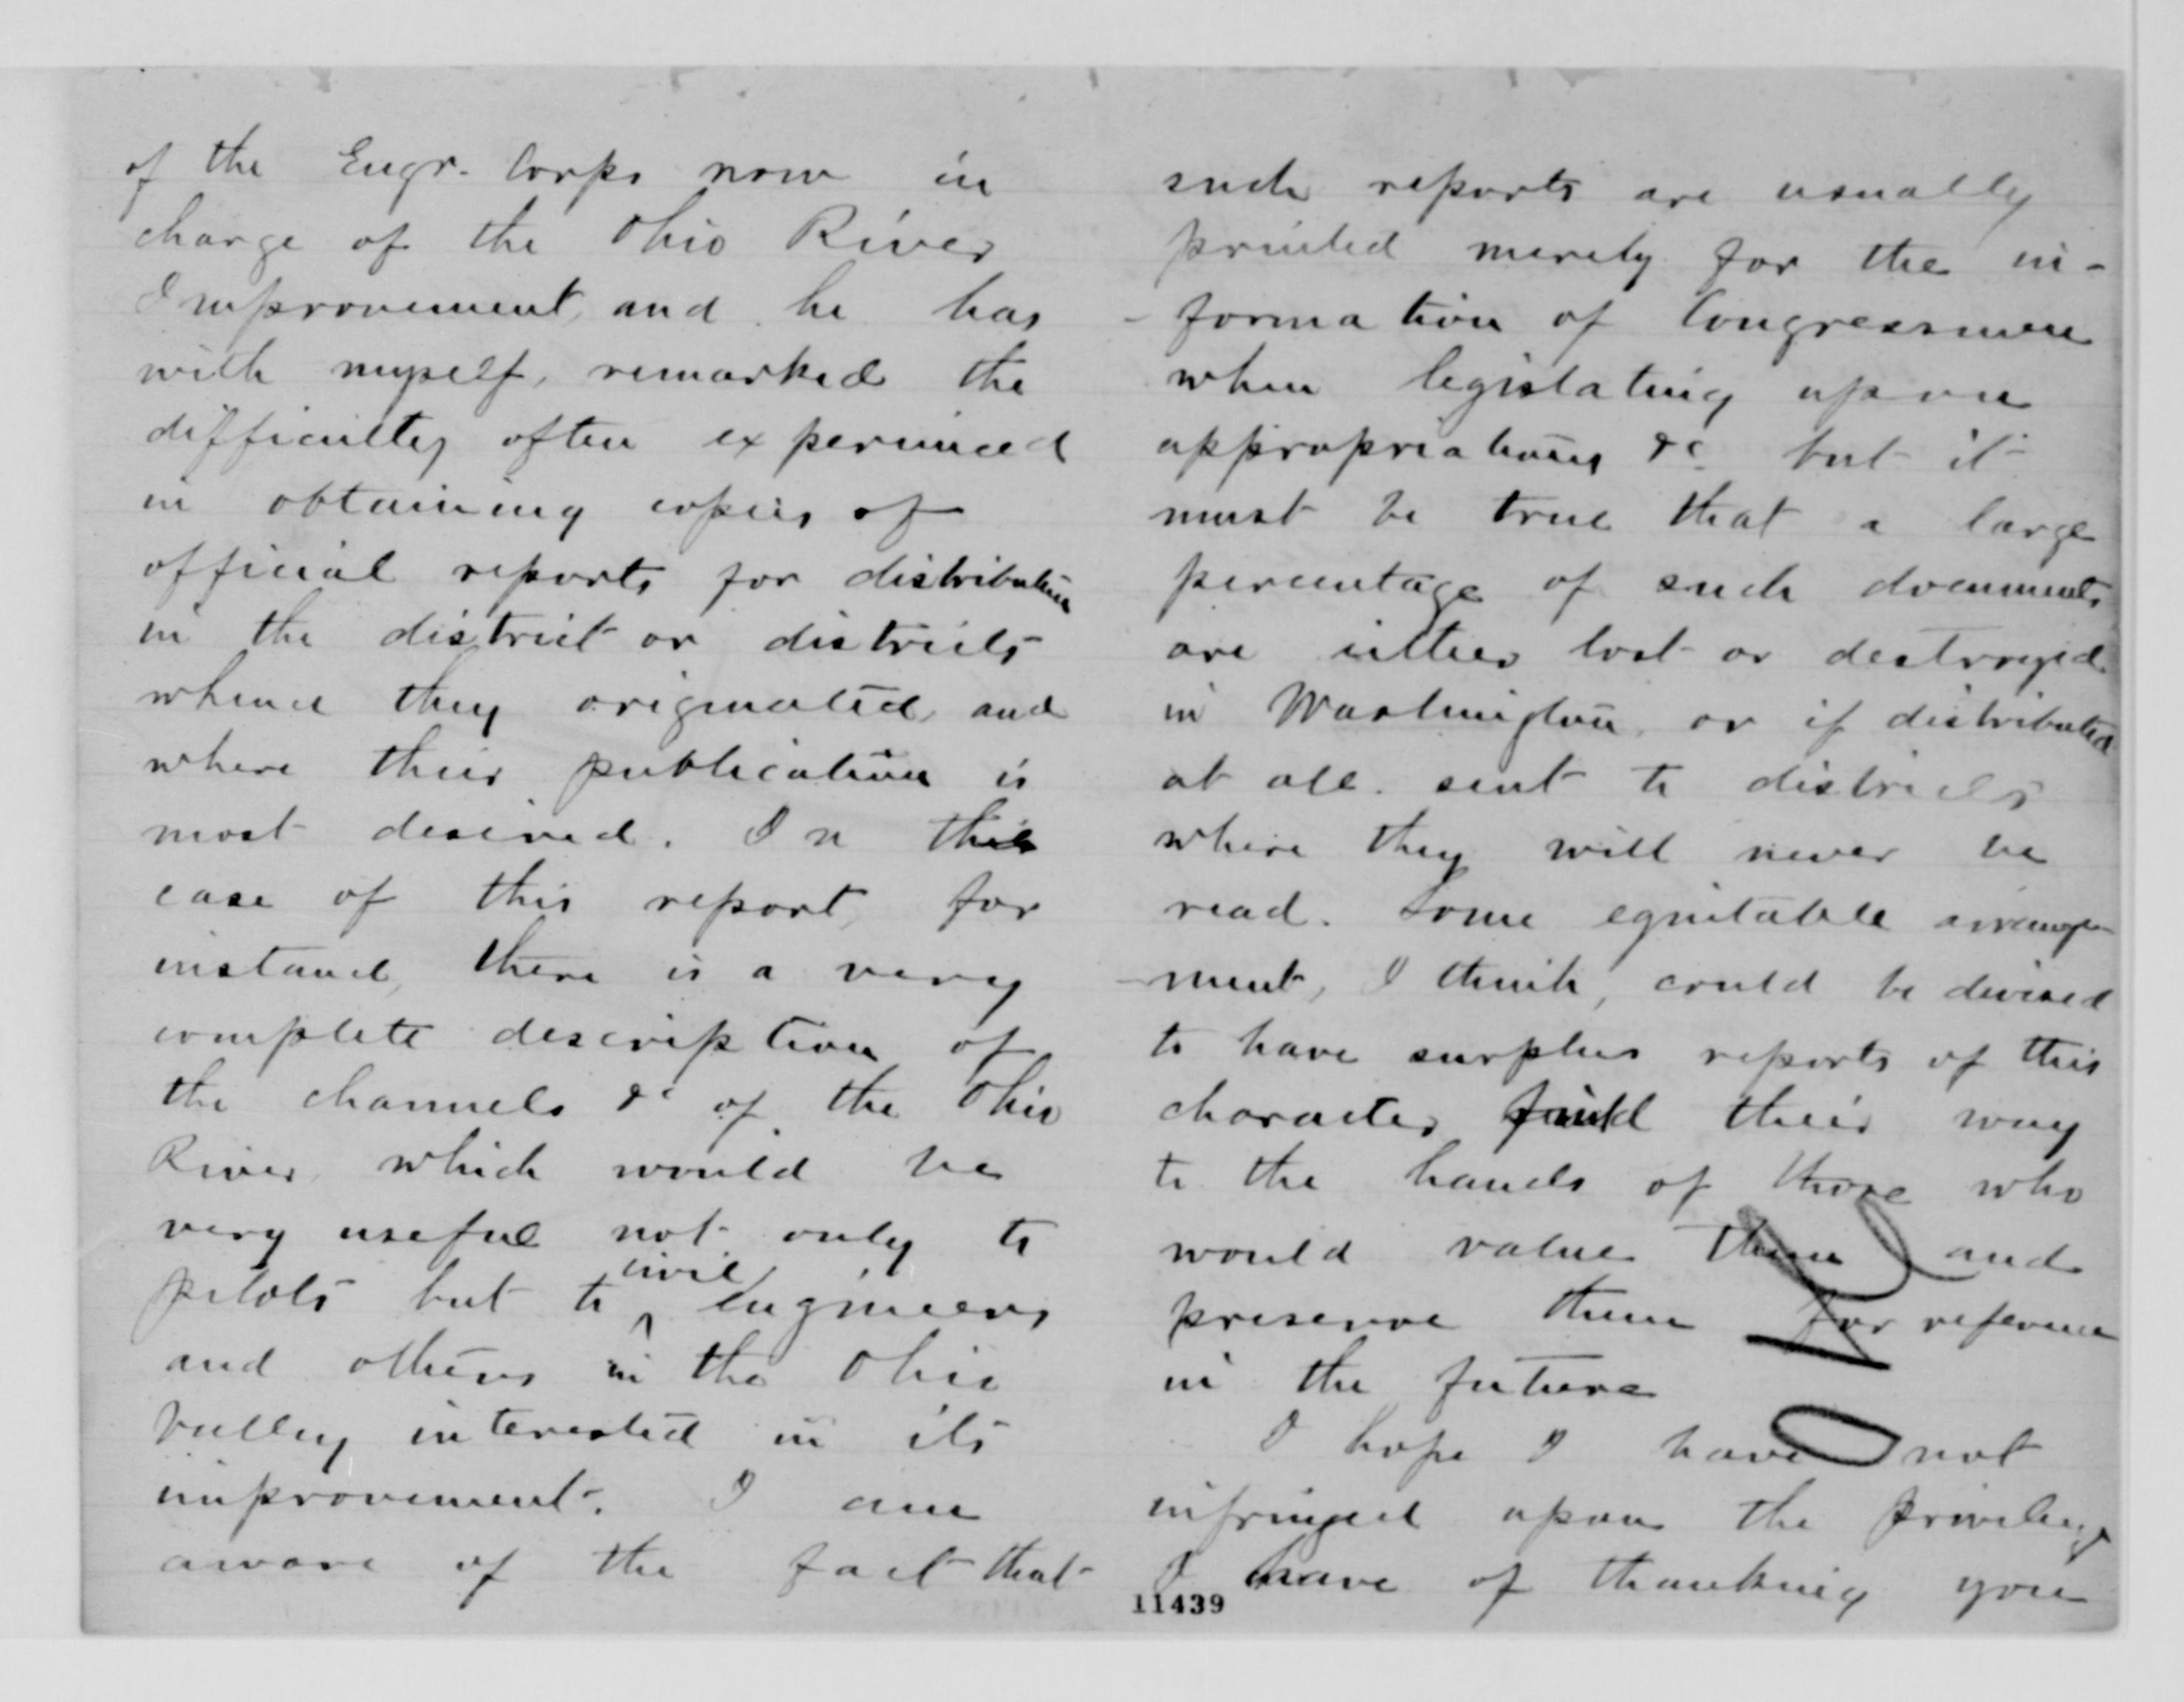 of the Engr. Corps now in
charge of the Ohio River
Improvement, and he has
with myself, remarked the
difficulty often experienced
in obtaining copies of
official reports for distribution
in the district or districts
whence they originated, and
where their publication is
most desired. In this
case of this report, for
instance, there is a very
complete description of
the channels &c of the Ohio
River, which would be
very useful not only to
pilots but to civil Engineers
and others in the Ohio
Valley interested in its
improvement. I am
aware of the fact that
such reports are usually
printed merely for the in-
-formation of Congressmen
when legislating upon
appropriations &c but it
must be true that a large
percentage of such documents
are either lost or destroyed
in Washington, or if distributed
at all sent to districts
where they will never be
read. Some equitable arrange-
-ment, I think, could be devised
to have surplus reports of this
character find their way
to the hands of those who
would value them and
preserve them for reference
in the future
I hope I have not
infringed upon the privilege
I have of thanking you
11439